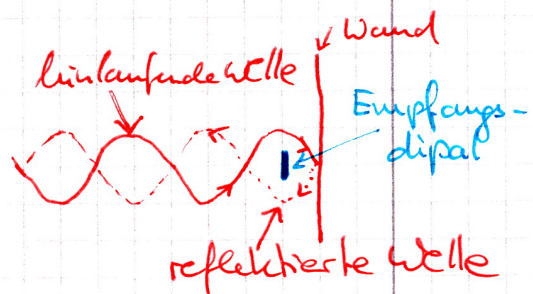 Wand
hinlaufende Welle
Empfangs-
dipol
reflektierte Welle